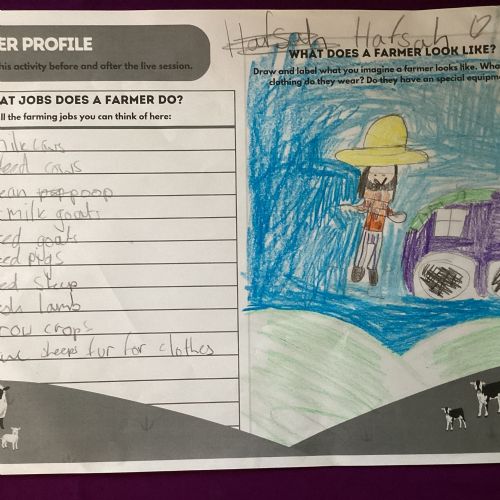 Hafsah Hafsah
ER PROFILE
his activity before and after the live session.
AT JOBS DOES A FARMER DO?
ll the farming jobs you can think of here:
milk cows
feed cows
ean poop
milk goats
eed goats
eed pigs
eed sheep
lamb
row crops
sheeps fur for clothes
WHAT DOES A FARMER LOOK LIKE?
Draw and label what you imagine a farmer looks like. Wha
clothing do they wear? Do they have an special equipm